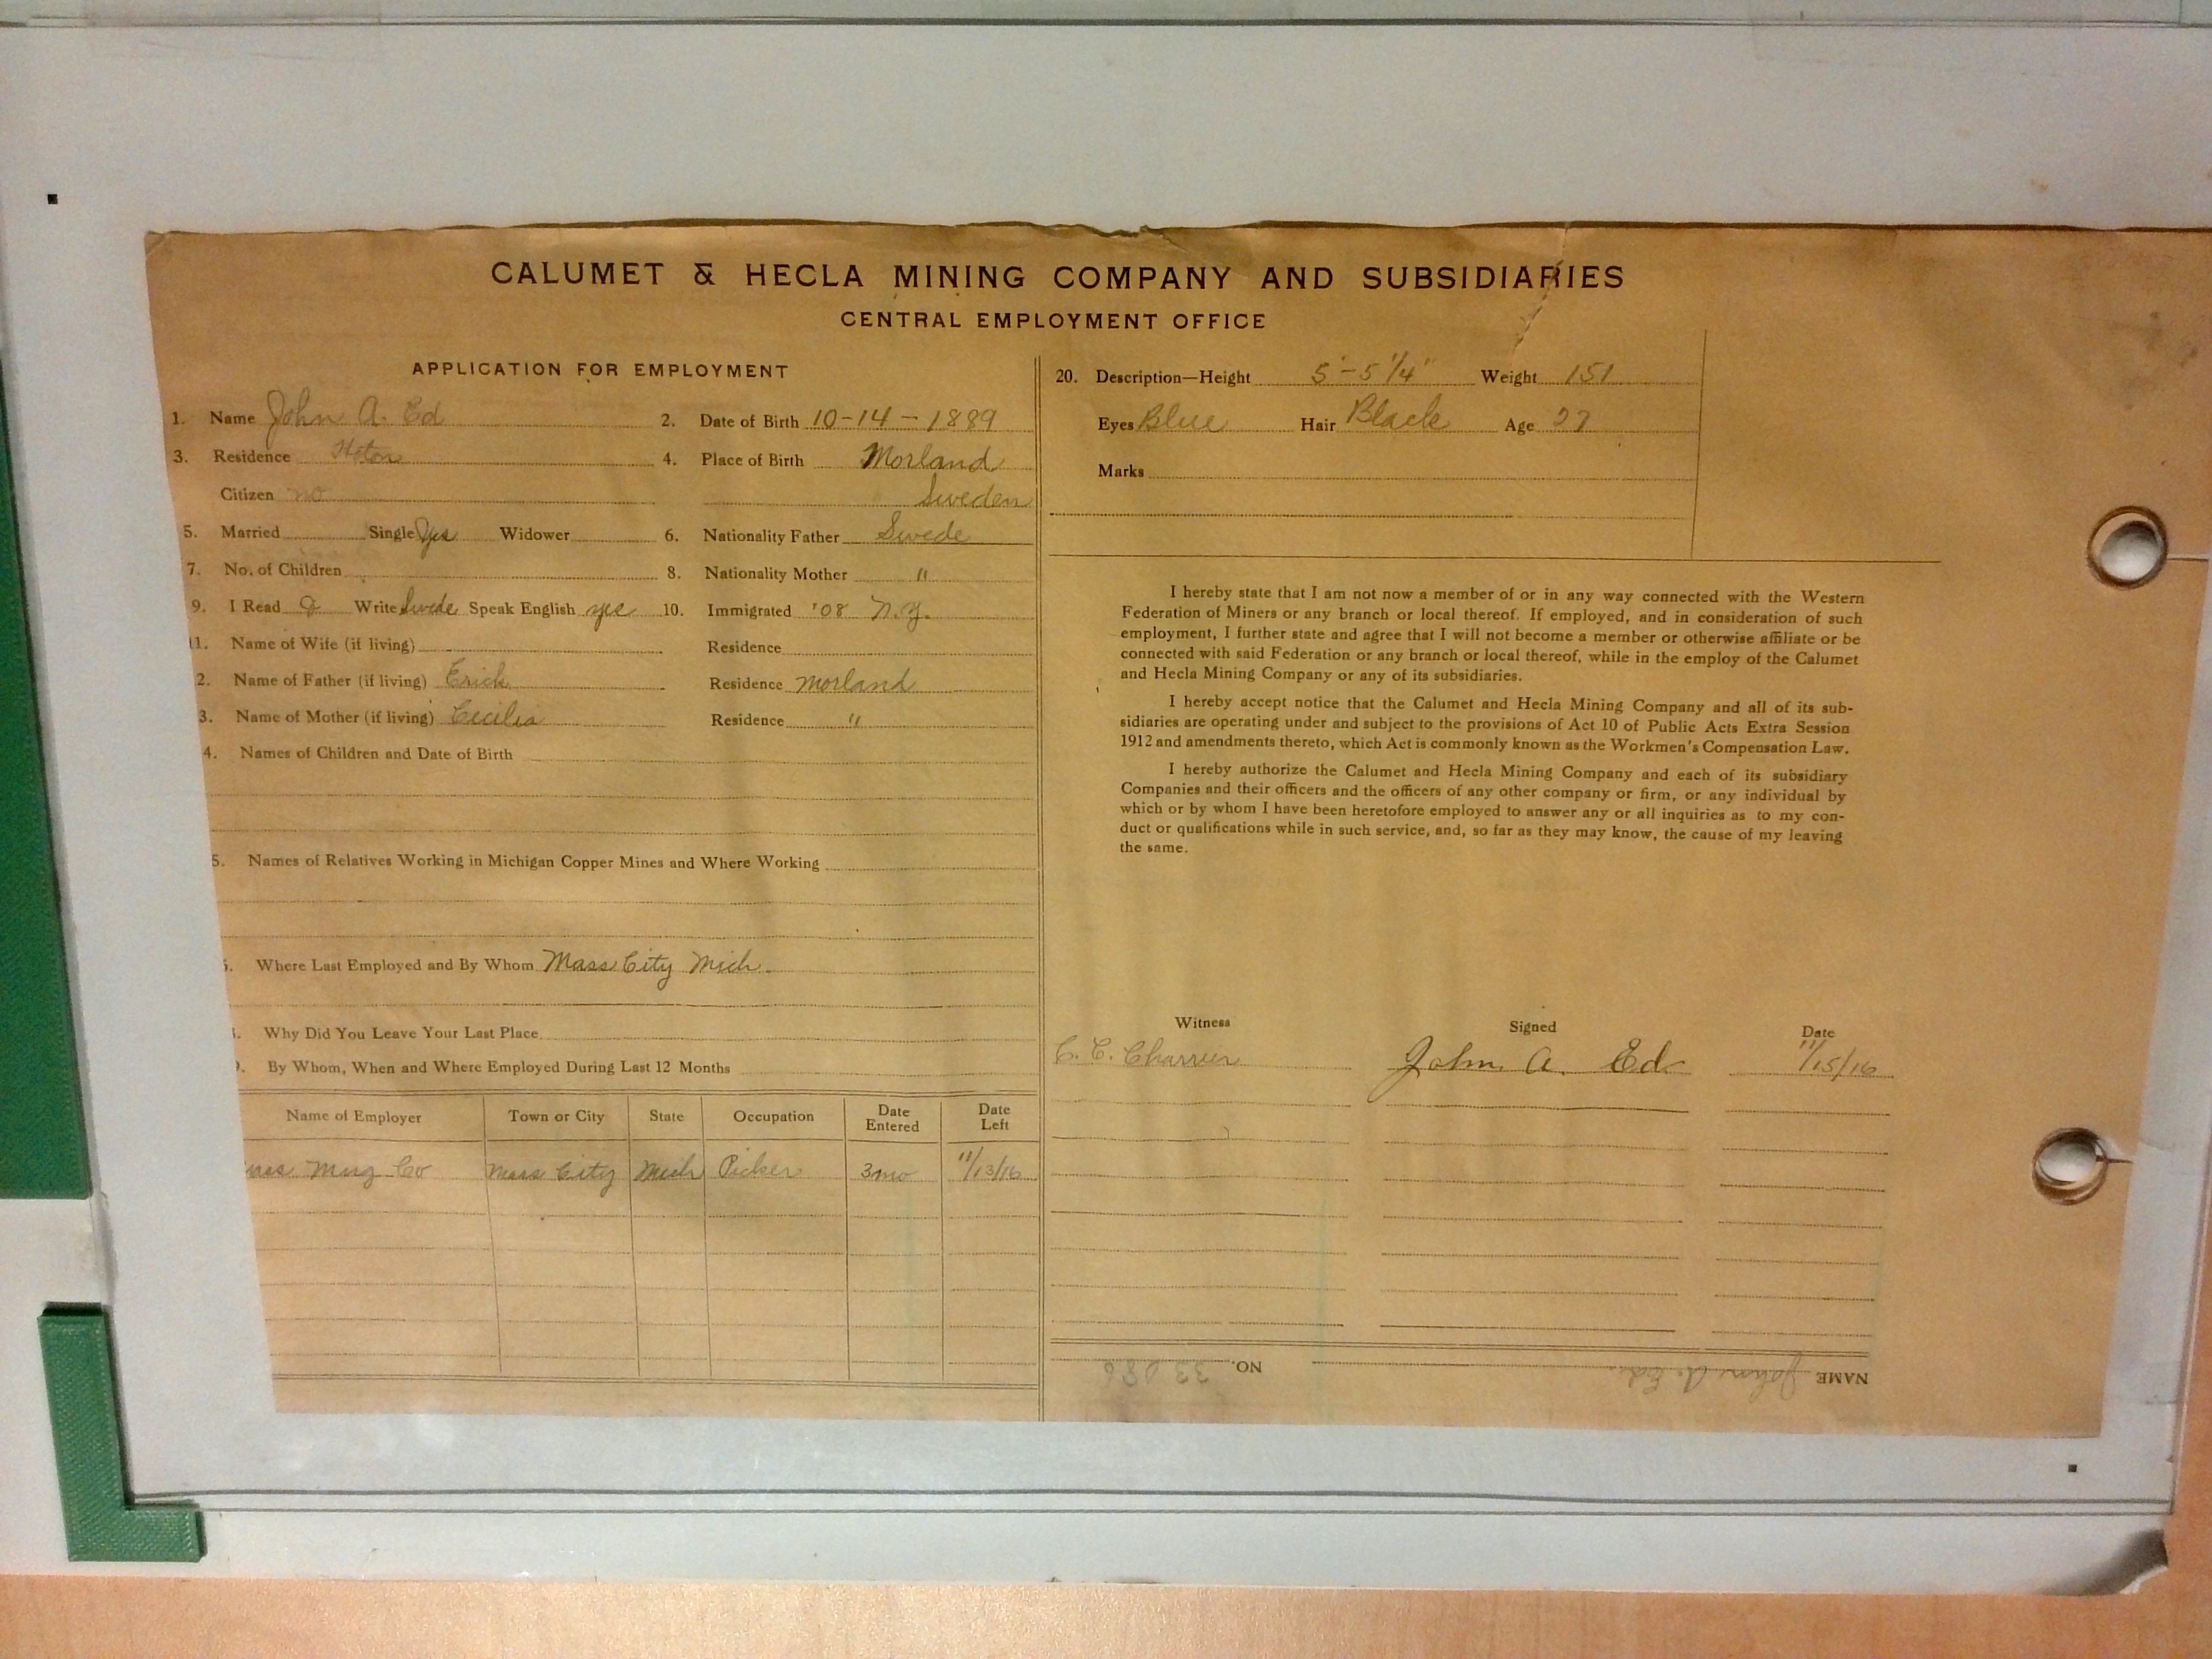 CALUMET & HECLA MINING COMPANY AND SUBSIDIARIES
CENTRAL EMPLOYMENT OFFICE
APPLICATION FOR EMPLOYMENT
1. Name John A. Ed 2. Date of Birth 10-14-1889
3. Residence Hoton 4. Place of Birth Morland
Citizen no Sweden
5. Married Single Yes Widower 6. Nationality Father Swede
7. No. of Children 8. Nationality Mother "
9. I Read & Write Swede Speak English yes 10. Immigrated '08 N.Y.
11. Name of Wife (if living) Residence
2. Name of Father (if living) Erick Residence Morland
3. Name of Mother (if living) Cecilia Residence "
4. Names of Children and Date of Birth
5. Names of Relatives Working in Michigan Copper Mines and Where Working
Where Last Employed and By Whom Mass City Mich.
Why Did You Leave Your Last Place
By Whom, When and Where Employed During Last 12 Months
Name of Employer Town or City State Occupation Date Entered Date Left
Mng Co Mass City Mich Picker 3mo 11/13/16
20. Description—Height 5'-5 1/4" Weight 151
Eyes Blue Hair Black Age 27
Marks
I hereby state that I am not now a member of or in any way connected with the Western
Federation of Miners or any branch or local thereof. If employed, and in consideration of such
employment, I further state and agree that I will not become a member or otherwise affiliate or be
connected with said Federation or any branch or local thereof, while in the employ of the Calumet
and Hecla Mining Company or any of its subsidiaries.
I hereby accept notice that the Calumet and Hecla Mining Company and all of its sub-
sidiaries are operating under and subject to the provisions of Act 10 of Public Acts Extra Session
1912 and amendments thereto, which Act is commonly known as the Workmen's Compensation Law.
I hereby authorize the Calumet and Hecla Mining Company and each of its subsidiary
Companies and their officers and the officers of any other company or firm, or any individual by
which or by whom I have been heretofore employed to answer any or all inquiries as to my con-
duct or qualifications while in such service, and, so far as they may know, the cause of my leaving
the same.
Witness Signed Date
C. C. Charrier John A. Ed 11/15/16
NAME John A. Ed. NO. 33086